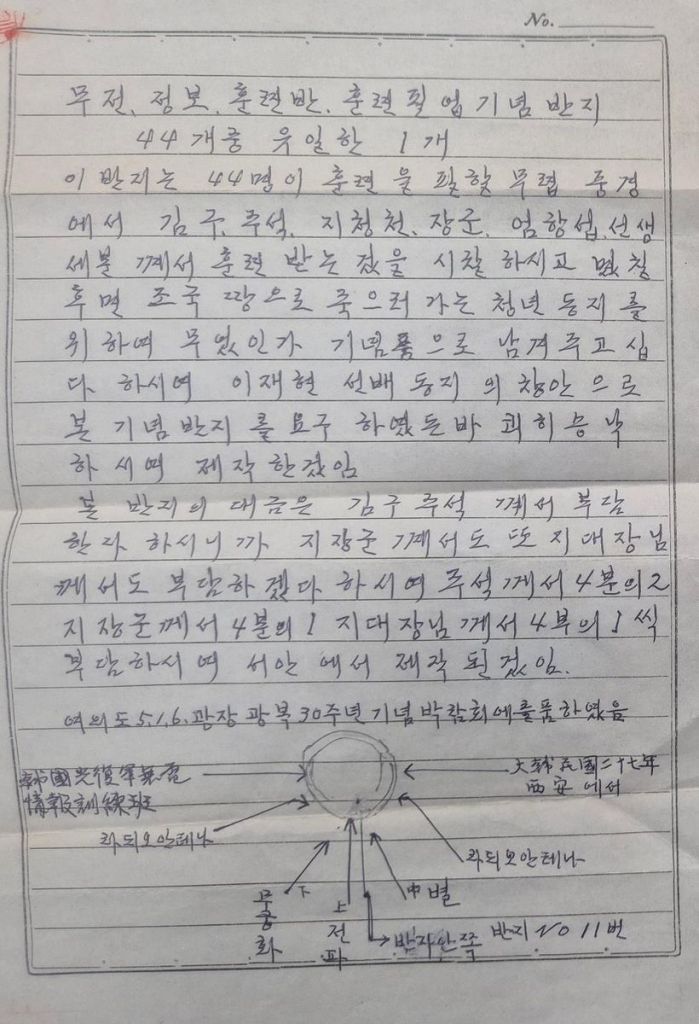 No.
무전, 정보, 훈련반, 훈련필업기념반지
44개중 유일한 1개
이 반지는 44명이 훈련을 필할 무렵 중경
에서 김구, 주석, 지청천, 장군, 엄항섭, 선생
세분 께서 훈련 받는 것을 시찰 하시고 몇칠
후면 조국 땅으로 죽으러 가는 청년 동지를
위하여 무엇인가 기념품으로 남겨주고 십
다 하시여 이재현 선배 동지의 창안으로
본 기념반지를 요구 하였든바 쾌히 응낙
하시여 제작한것임
본 반지의 대금은 김구 주석 께서 부담
한다 하시니까 지장군 께서도 또 지대장님
께서도 부담하겠다 하시여 주석께서 4분의2
지장군께서 4분의1 지대장님께서 4부의1씩
부담하시여 서안에서 제작된것임.
여의도 5.1.6. 광장 광복30주년기념박람회에출품하였음
韓國光復軍無電
情報訓練班
大韓民國二十七年
西安에서
라듸오안테나
라듸오안테나
下
무궁화
上
전파
中별
반지안쪽 반지 NO 11번